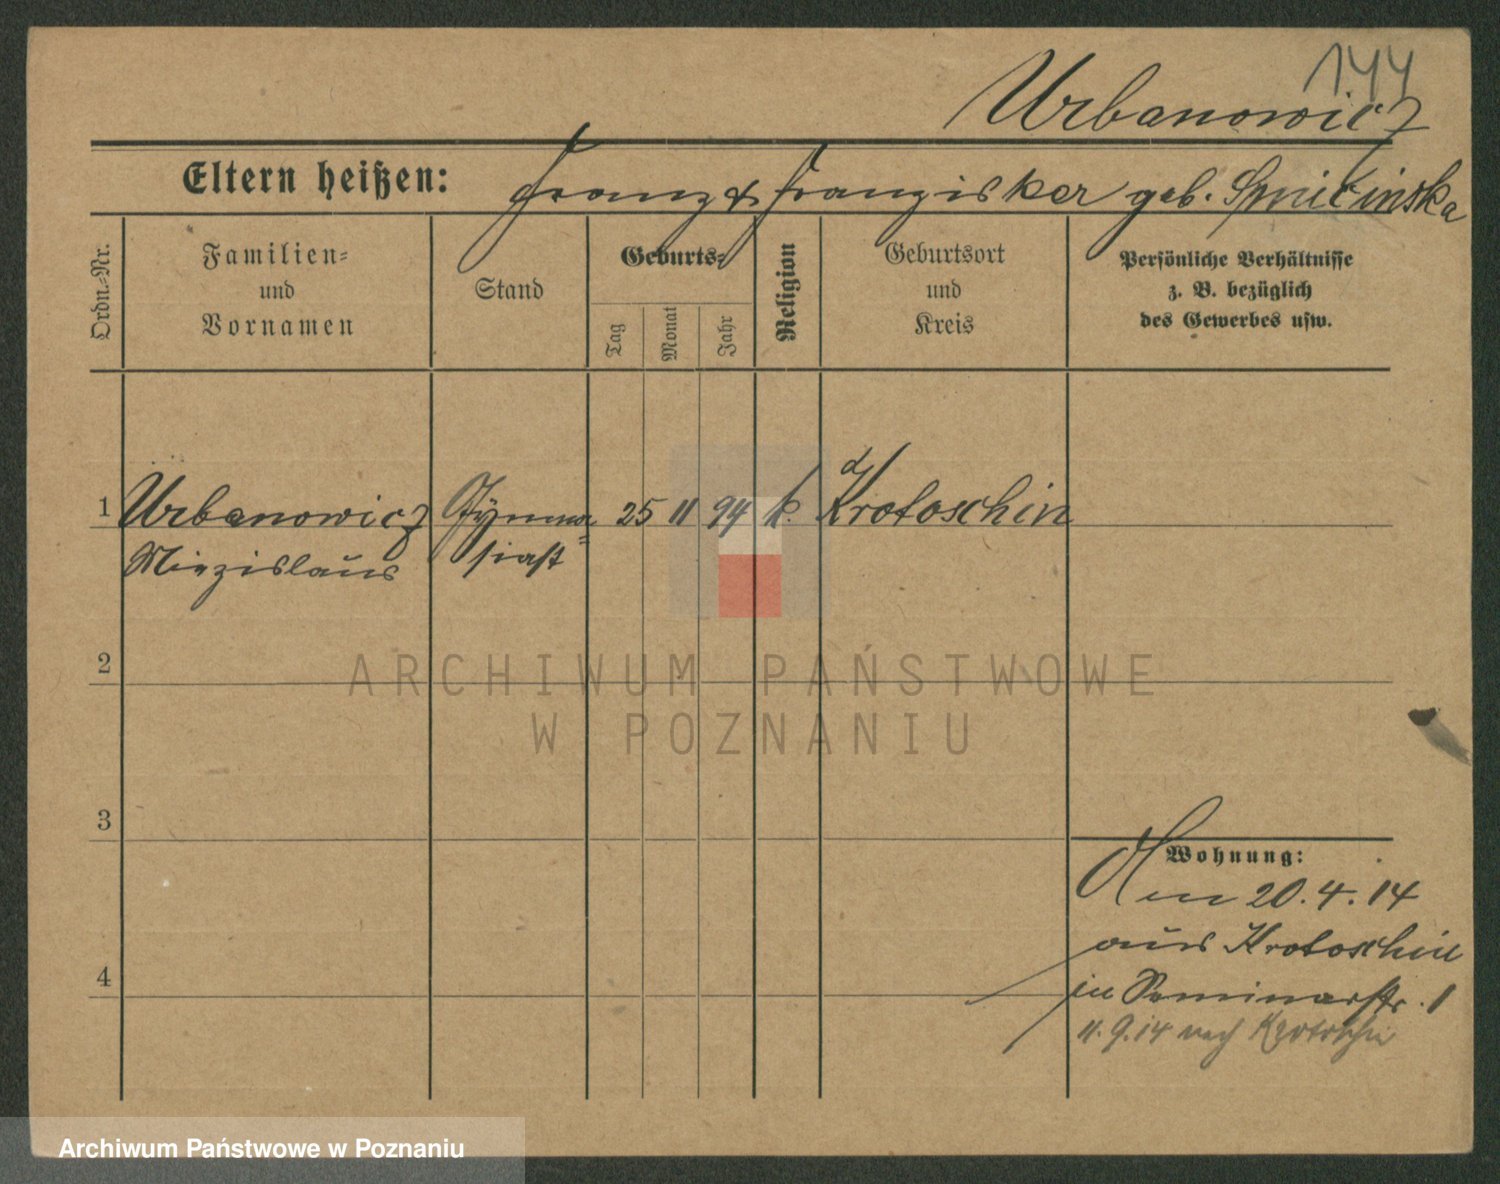 144
Urbanowicz
Eltern heißen: Franz & Franziska geb.
Ordn.-Nr.
Familien-
und
Vornamen
Stand
Geburts-
Tag
Monat
Jahr
Religion
Geburtsort
und
Kreis
Persönliche Verhältnisse
z. B. bezüglich
des Gewerbes usw.
1 Urbanowicz Gymna= 25 11 94 k. Krotoschin
Miezislaus siast
2
3
4
Wohnung:
20.4.14
aus Krotoschin
in Seminarstr. 1
11.9.14 nach Krotoschin
ARCHIWUM PAŃSTWOWE
W POZNANIU
Archiwum Państwowe w Poznaniu